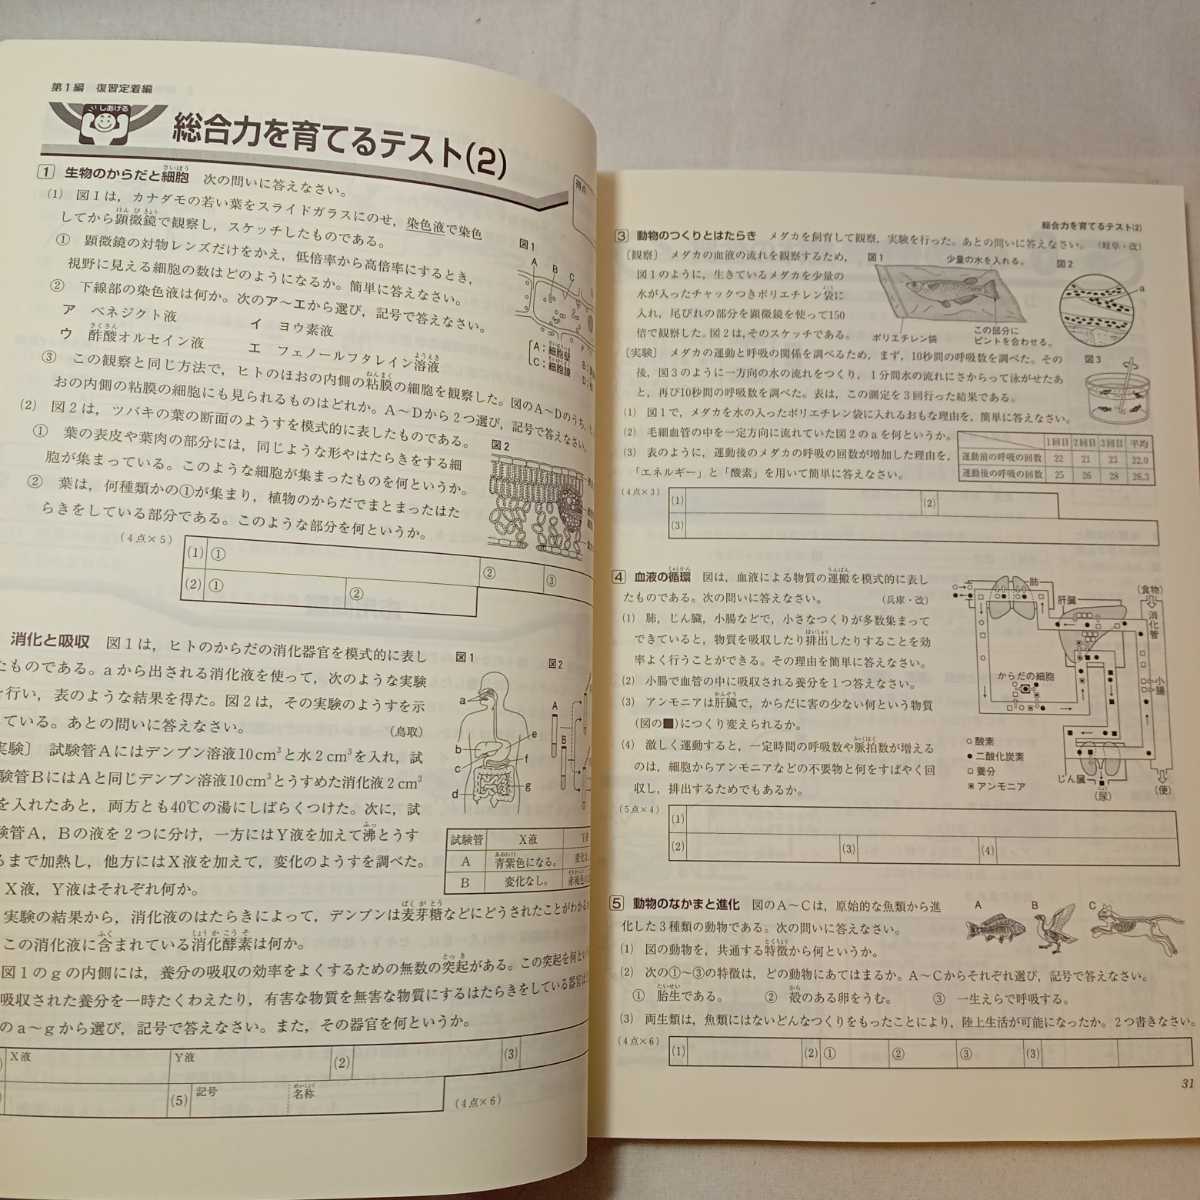 第1編 復習定着編
しあげる
総合力を育てるテスト(2)
得点
1 生物のからだと細胞 次の問いに答えなさい。
(1) 図1は，カナダモの若い葉をスライドガラスにのせ，染色液で染色
してから顕微鏡で観察し，スケッチしたものである。
① 顕微鏡の対物レンズだけをかえ，低倍率から高倍率にするとき，
視野に見える細胞の数はどのようになるか。簡単に答えなさい。
② 下線部の染色液は何か。次のア～エから選び，記号で答えなさい。
ア ベネジクト液 イ ヨウ素液
ウ 酢酸オルセイン液 エ フェノールフタレイン溶液
③ この観察と同じ方法で，ヒトのほおの内側の粘膜の細胞を観察した。図のA～Dのうち，ヒ
おの内側の粘膜の細胞にも見られるものはどれか。A～Dから2つ選び，記号で答えなさい。
図1
A B C
A：細胞壁
C：細胞膜
(2) 図2は，ツバキの葉の断面のようすを模式的に表したものである。
① 葉の表皮や葉肉の部分には，同じような形やはたらきをする細
胞が集まっている。このような細胞が集まったものを何というか。
② 葉は，何種類かの①が集まり，植物のからだでまとまったはた
らきをしている部分である。このような部分を何というか。
図2
(4点×5)
(1) ① ② ③
(2) ① ②
消化と吸収 図1は，ヒトのからだの消化器官を模式的に表し
たものである。aから出される消化液を使って，次のような実験
を行い，表のような結果を得た。図2は，その実験のようすを示
ている。あとの問いに答えなさい。 (鳥取)
実験〕 試験管Aにはデンプン溶液10cm³と水2cm³を入れ，試
験管BにはAと同じデンプン溶液10cm³とうすめた消化液2cm³
を入れたあと，両方とも40℃の湯にしばらくつけた。次に，試
験管A，Bの液を2つに分け，一方にはY液を加えて沸とうす
るまで加熱し，他方にはX液を加えて，変化のようすを調べた。
X液，Y液はそれぞれ何か。
実験の結果から，消化液のはたらきによって，デンプンは麦芽糖などにどうされたことがわか
この消化液に含まれている消化酵素は何か。
図1のgの内側には，養分の吸収の効率をよくするための無数の突起がある。この突起を何とい
吸収された養分を一時たくわえたり，有害な物質を無害な物質にするはたらきをしている器官は
のa～gから選び，記号で答えなさい。また，その器官を何というか。
図1 図2
a b c d e f g
A
B
試験管 X液
A 青紫色になる。
B 変化なし。
X液 Y液 (2) (3)
(5) 記号 名称
(4点×6)
総合力を育てるテスト(2)
3 動物のつくりとはたらき メダカを飼育して観察，実験を行った。あとの問いに答えなさい。(岐阜・改)
〔観察〕 メダカの血液の流れを観察するため，
図1のように，生きているメダカを少量の
水が入ったチャックつきポリエチレン袋に
入れ，尾びれの部分を顕微鏡を使って150
倍で観察した。図2は，そのスケッチである。
図1 少量の水を入れる。
ポリエチレン袋
この部分に
ピントを合わせる。
図2
a
〔実験〕 メダカの運動と呼吸の関係を調べるため，まず，10秒間の呼吸数を調べた。その
後，図3のように一方向の水の流れをつくり，1分間水の流れにさからって泳がせたあ
と，再び10秒間の呼吸数を調べた。表は，この測定を3回行った結果である。
図3
(1) 図1で，メダカを水の入ったポリエチレン袋に入れるおもな理由を，簡単に答えなさい。
(2) 毛細血管の中を一定方向に流れていた図2のaを何というか。
(3) 表のように，運動後のメダカの呼吸の回数が増加した理由を，
「エネルギー」と「酸素」を用いて簡単に答えなさい。
1回目 2回目 3回目 平均
運動前の呼吸の回数 22 21 23 22.0
運動後の呼吸の回数 25 26 28 26.3
(4点×3)
(1) (2)
(3)
4 血液の循環 図は，血液による物質の運搬を模式的に表し
たものである。次の問いに答えなさい。 (兵庫・改)
(1) 肺，じん臓，小腸などで，小さなつくりが多数集まって
できていると，物質を吸収したり排出したりすることを効
率よく行うことができる。その理由を簡単に答えなさい。
(2) 小腸で血管の中に吸収される養分を1つ答えなさい。
(3) アンモニアは肝臓で，からだに害の少ない何という物質
(図の■)につくり変えられるか。
(4) 激しく運動すると，一定時間の呼吸数や脈拍数が増える
のは，細胞からアンモニアなどの不要物と何をすばやく回
収し，排出するためでもあるか。
肺
肝臓
(食物)
消化管
からだの細胞
小腸
○ 酸素
● 二酸化炭素
□ 養分
アンモニア
じん臓
(尿)
(便)
(5点×4)
(1)
(2) (3) (4)
5 動物のなかまと進化 図のA～Cは，原始的な魚類から進
化した3種類の動物である。次の問いに答えなさい。
(1) 図の動物を，共通する特徴から何というか。
A B C
(2) 次の①～③の特徴は，どの動物にあてはまるか。A～Cからそれぞれ選び，記号で答えなさい。
① 胎生である。 ② 殻のある卵をうむ。 ③ 一生えらで呼吸する。
(3) 両生類は，魚類にはないどんなつくりをもったことにより，陸上生活が可能になったか。2つ書きなさい。
(4点×6)
(1) (2) ① ② ③ (3)
31